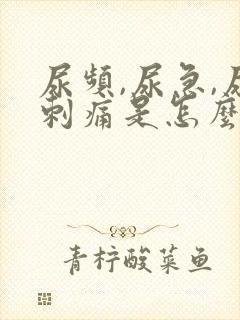 尿頻,尿急,尿
刺痛是怎麼
青柠酸菜鱼